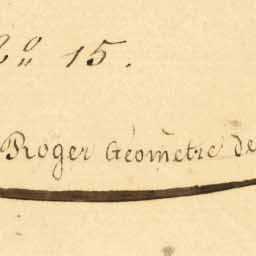 N.º 15.
Roger Géometre de